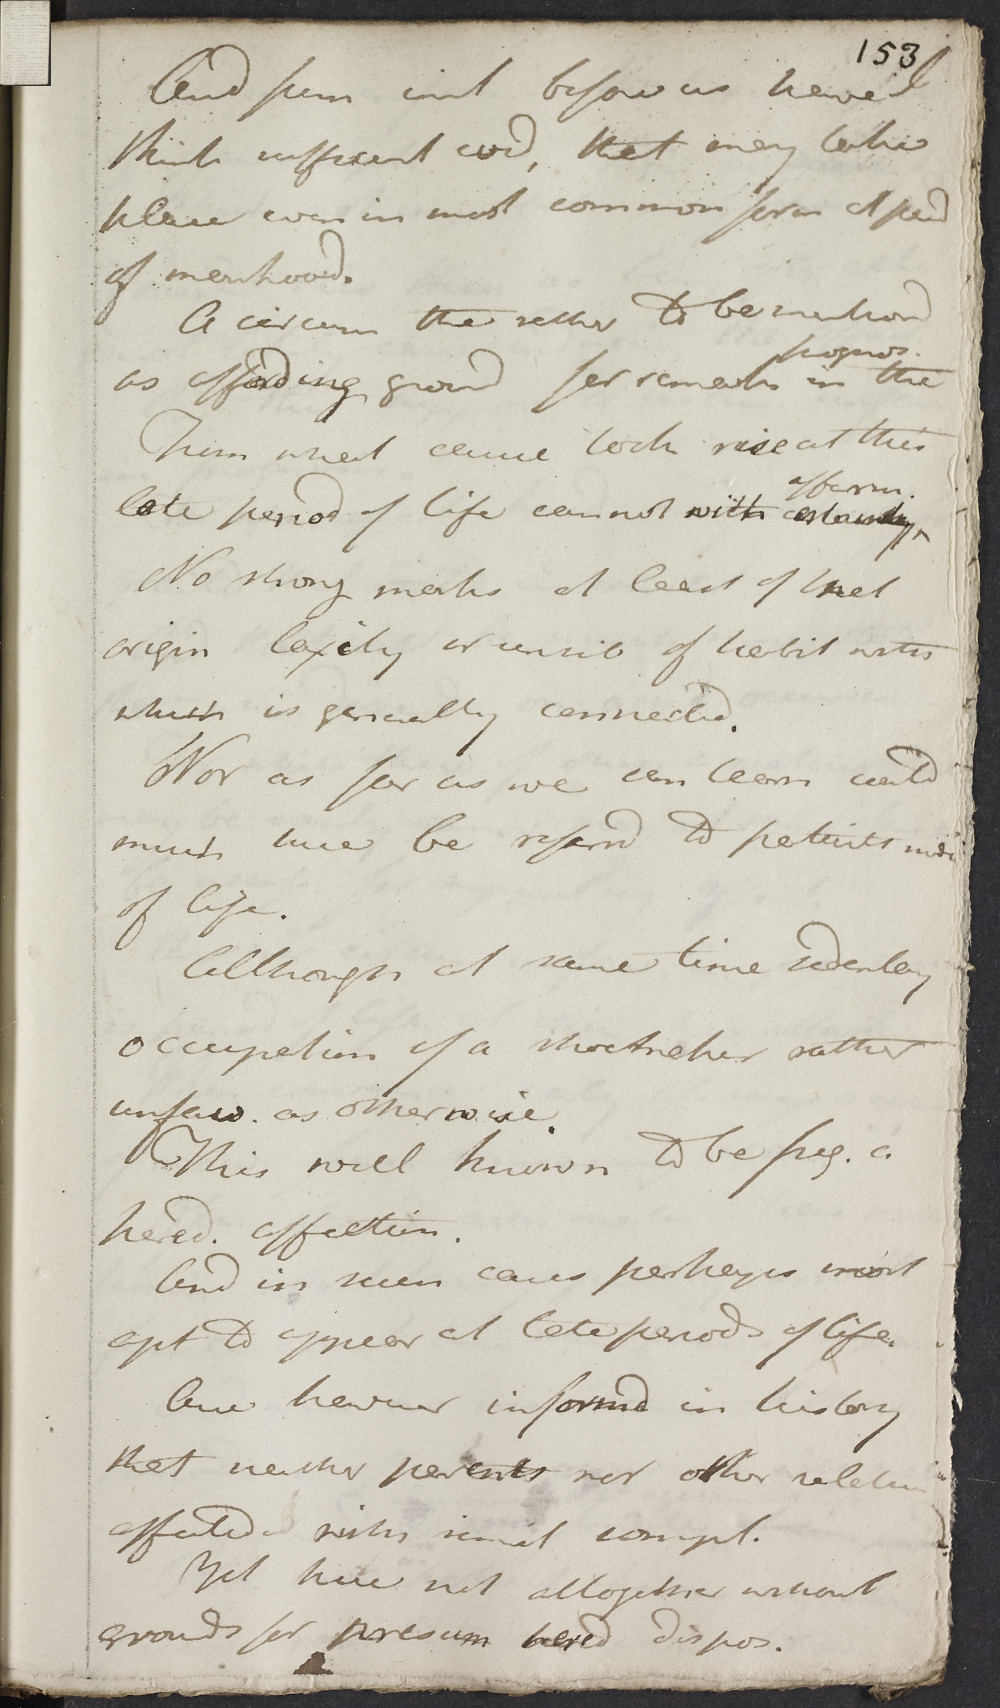 153
And from inst before us have I
think sufficient evid, that may take
place even in most common form at period
of manhood.
A circum the rather to be mentiond
prognos.
as affording ground for remarks in the
From what cause took rise at this
affirm.
late period of life cannot with certainty
No strong marks at least of that
origin laxity or sensib of habit with
which is generally connected.
Nor as far as we can learn could
much here be referrd to patients mode
of life.
Although at same time sedentary
occupation of a shoemaker rather
unfav. as otherwise.
This well known to be freq. a
hered. affection.
And in such cases perhaps most
apt to appear at late periods of life.
Are however informd in history
that neither parents nor other relations
affected with simil compl.
Yet here not altogether without
grounds for presum hered dispos.